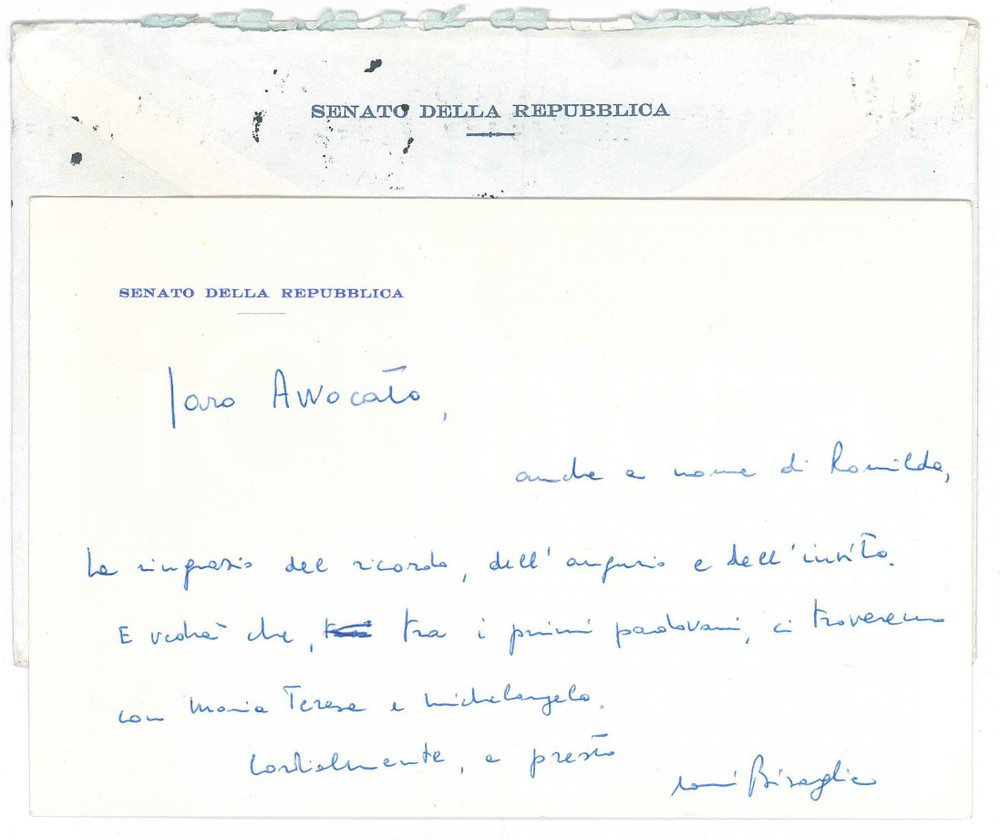 SENATO DELLA REPUBBLICA
SENATO DELLA REPUBBLICA
Caro Avvocato,
anche a nome di Romilda,
La ringrazio del ricordo, dell'augurio e dell'invito.
E vedrà che, tra i primi padovani, ci troveremo
con Maria Teresa e Michelangelo.
Cordialmente, a presto
Toni Bisaglia